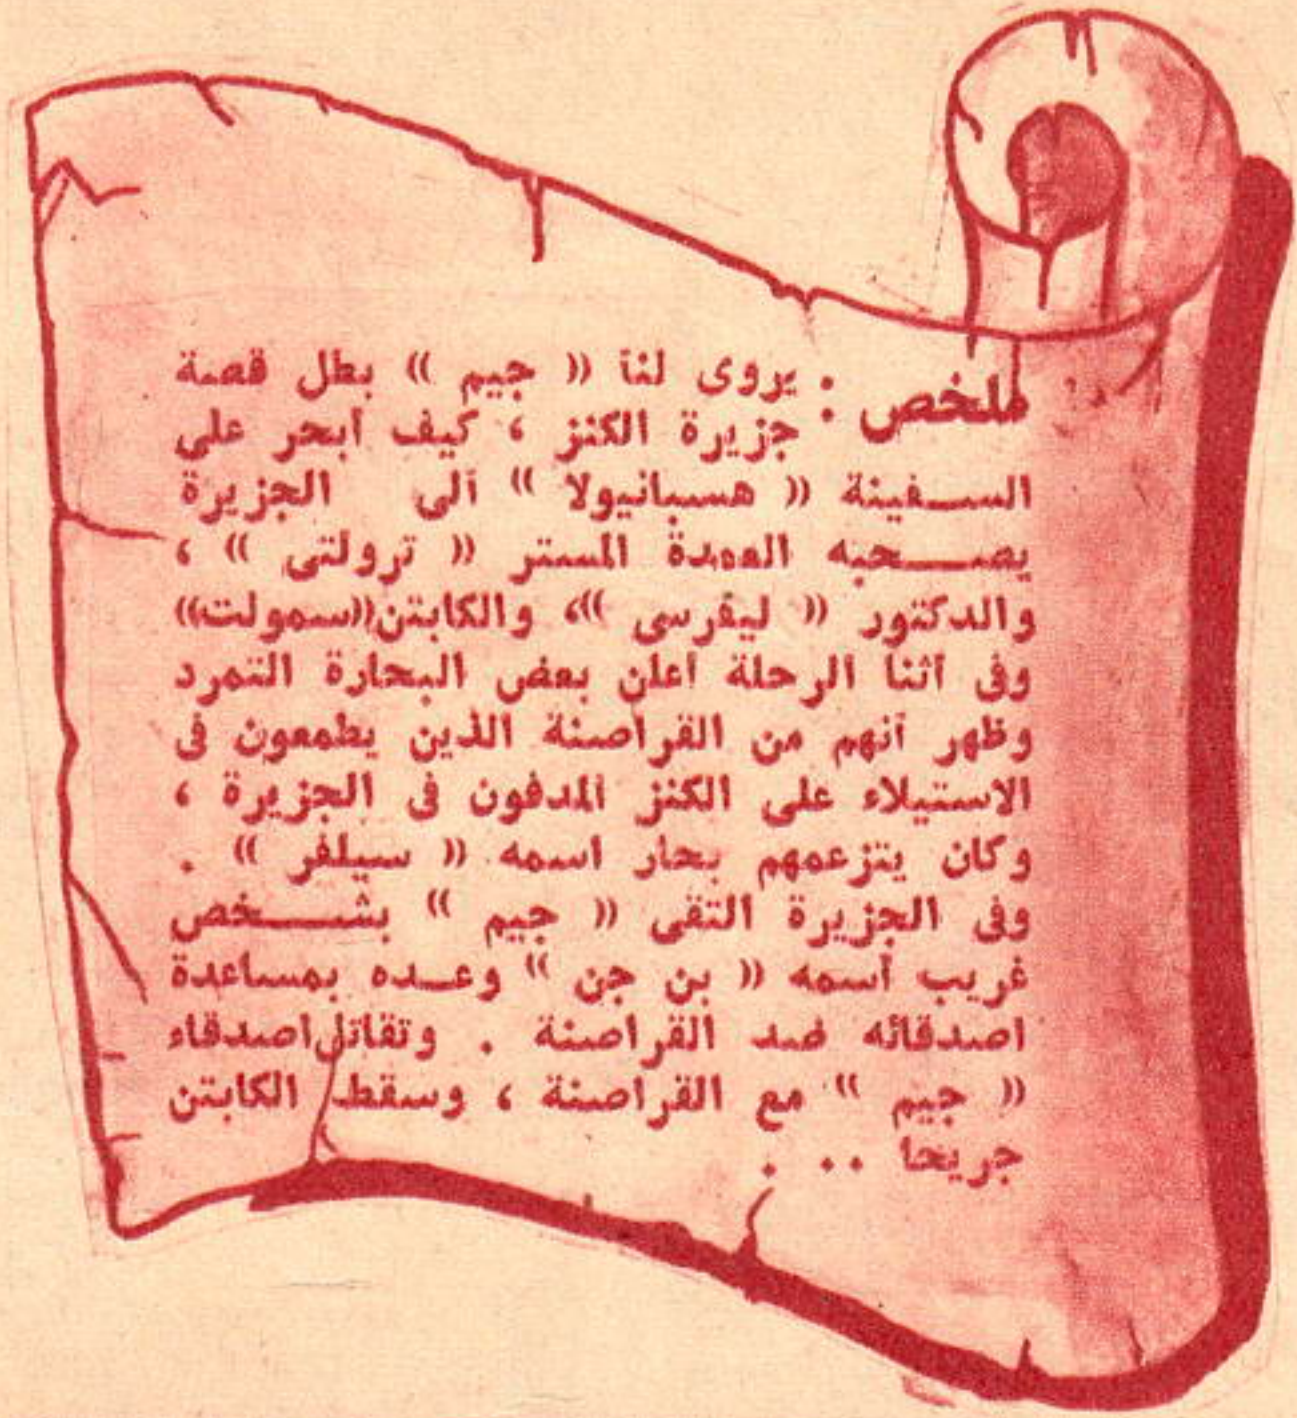 ملخص : يروى لنا « جيم » بطل قصة
جزيرة الكنز ، كيف أبحر على
السـفينة « هسبانيولا » الى الجزيرة
يصـحبه العمدة المستر « ترولتى » ،
والدكتور « ليفرسى »، والكابتن«سمولت»
وفى أثنا الرحلة أعلن بعض البحارة التمرد
وظهر أنهم من القراصنة الذين يطمعون فى
الاستيلاء على الكنز المدفون فى الجزيرة ،
وكان يتزعمهم بحار اسمه « سيلفر » .
وفى الجزيرة التقى « جيم » بشـخص
غريب أسمه « بن جن » وعـده بمساعدة
اصدقائه ضد القراصنة . وتقاتل اصدقاء
« جيم » مع القراصنة ، وسقط الكابتن
جريحا .. .